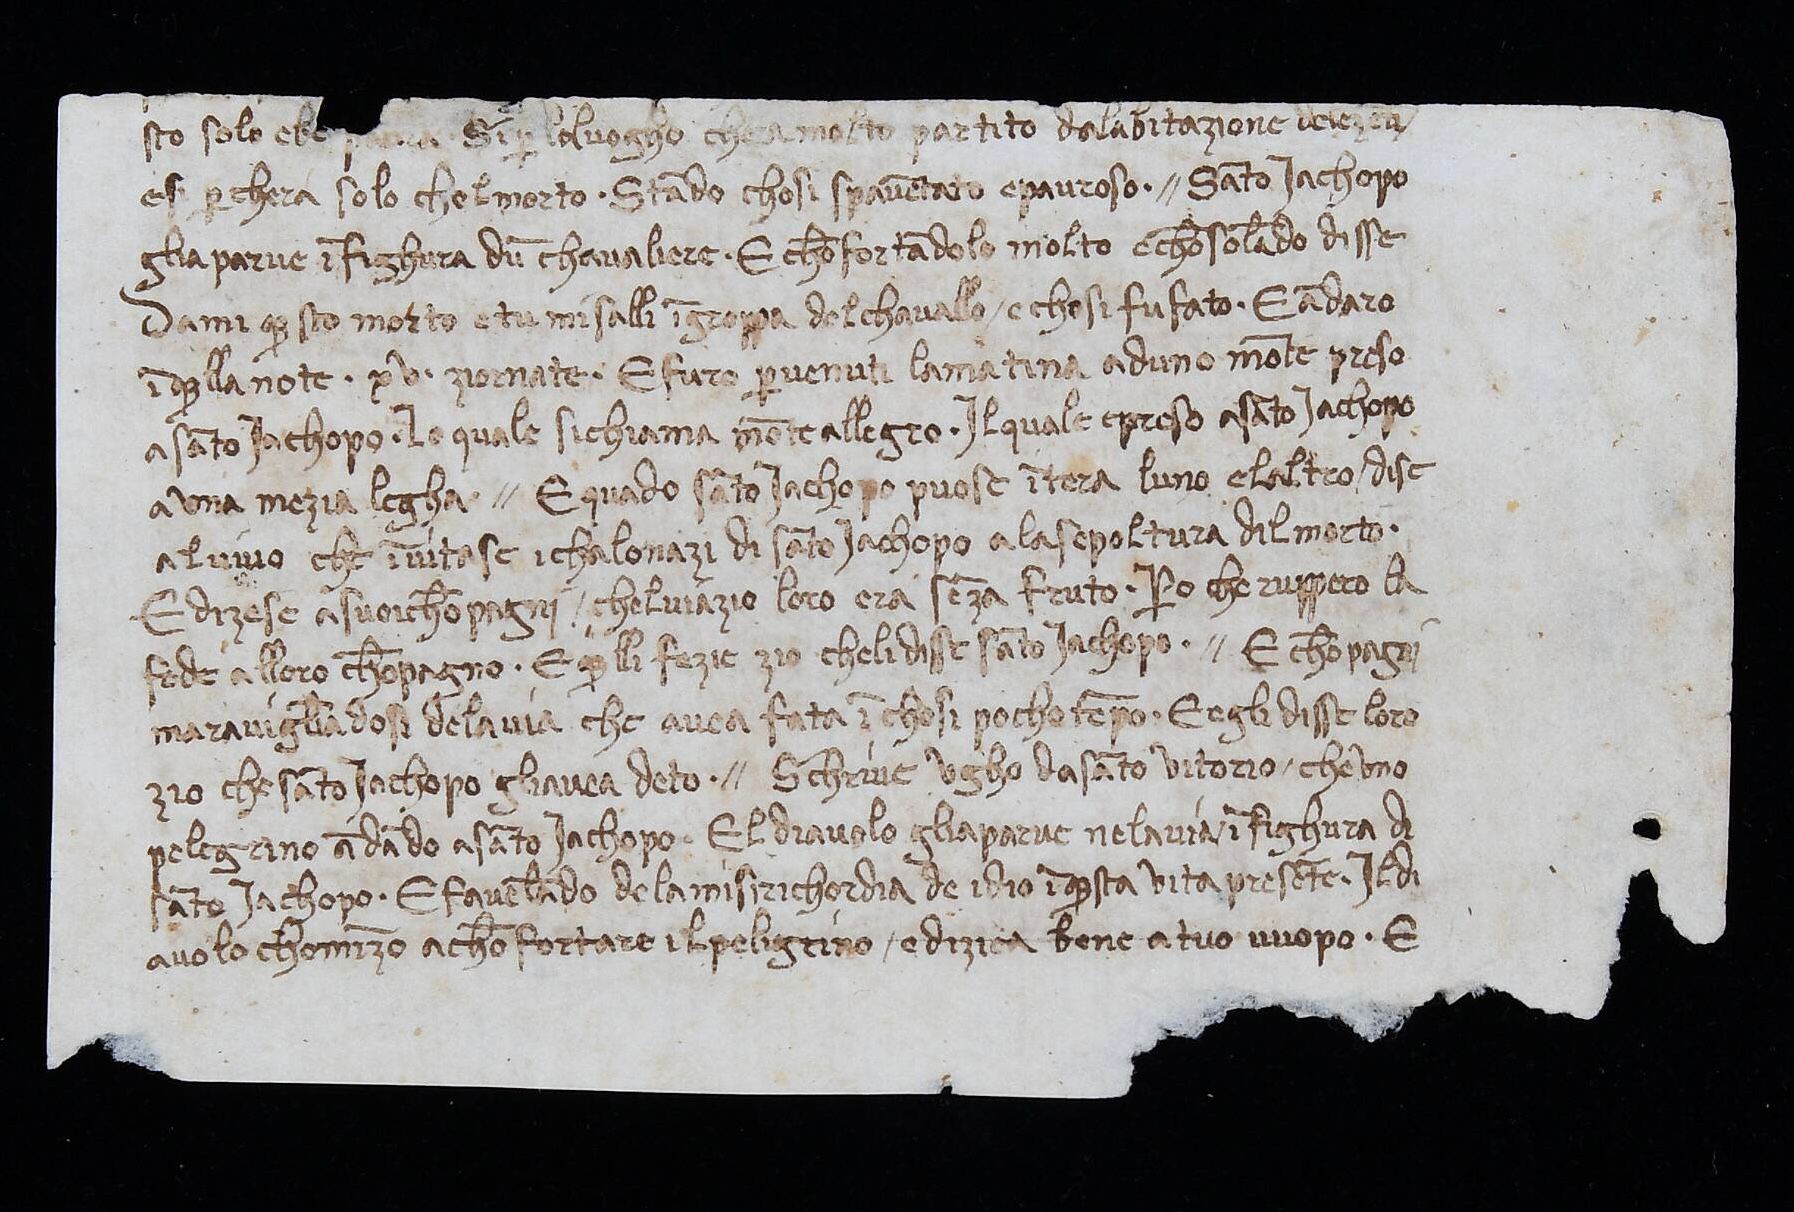 sto solo ebe paura. Si ꝑ loluogho chera molto partito dalabitazione
esi ꝑchera solo chelmorto. Stādo chosi spavētato epauroso. // Sāto Jachopo
gliaparve ī fighura dū chavaliere. E chōfortādolo molto echōsolādo disse
Dami q̄sto morto etu misalli īgroppa delchavallo / e chosi fu fato. E ādaro
īq̄lla note. xv. ziornate. E furo ꝑvenuti lamatina aduno mōte preso
a sāto Jachopo. Lo quale sichiama mōte allegro. Il quale epreso asāto Jachopo
a una mezia legha. // E quādo sāto Jachopo puose ītera luno elaltro / dise
aluivo che īvitase ichalonazi di sāto Jachopo alasepoltura dilmorto.
E dizese asuoichōpagni / chelviazio loro era sēza fruto. ꝑo che ruppero la
fede alloro chōpagno. E q̄lli fezie zio chelidisse sāto Jachopo. // E chōpagni
maravigliādosi delavia che avea fata ī chosi pocho tēpo. E egli disse loro
zio che sāto Jachopo gliavea deto. // Schrive Ugho dasāto vitorio / cheuno
pelegrino ādādo asāto Jachopo. El diavolo gliaparve nelavia / ī fighura di
sāto Jachopo. E favelādo delamisirichordia de idio īq̄sta vita presēte. Il di
avolo chomīzo achōfortare ilpeligrino / edizica bene atuo uvopo. E